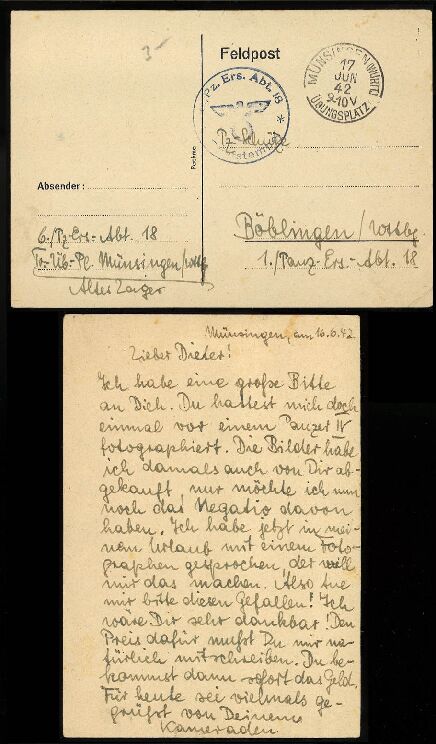 3-
Feldpost
MÜNSINGEN (WÜRTT)
17
JUN
42
9-10V
ÜBUNGSPLATZ
Pz. Ers. Abt. 18
Pz.-Schütze
Absender:
6./Pz.-Ers.-Abt. 18
Tr.-Üb.-Pl. Münsingen/Wttbg
Altes Lager
Böblingen/Wttbg.
1./Panz.-Ers.-Abt. 18
Münsingen, am 16.6.42
Lieber Dieter!
Ich habe eine große Bitte
an Dich. Du hattest mich doch
einmal vor einem Panzer IV
fotographiert. Die Bilder habe
ich damals auch von Dir ab-
gekauft, nur möchte ich nun
noch das Negativ davon
haben. Ich habe jetzt in mei-
nem Urlaub mit einem Foto-
graphen gesprochen, der will
mir das machen. Also tue
mir bitte diesen Gefallen! Ich
wäre Dir sehr dankbar! Den
Preis dafür mußt Du mir na-
türlich mitschreiben. Du be-
kommst dann sofort das Geld.
Für heute sei vielmals ge-
grüßt von Deinem
Kameraden